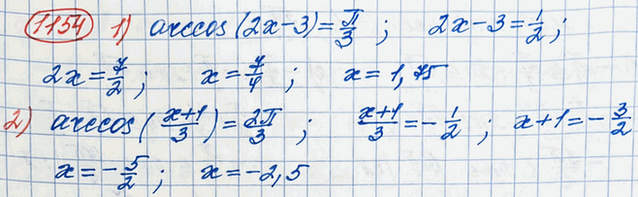 1154 1) arccos(2x-3)=π/3 ; 2x-3=1/2 ;
2x=7/2 ; x=7/4 ; x=1,75
2) arccos(x+1/3)=2π/3 ; x+1/3=-1/2 ; x+1=-3/2
x=-5/2 ; x=-2,5